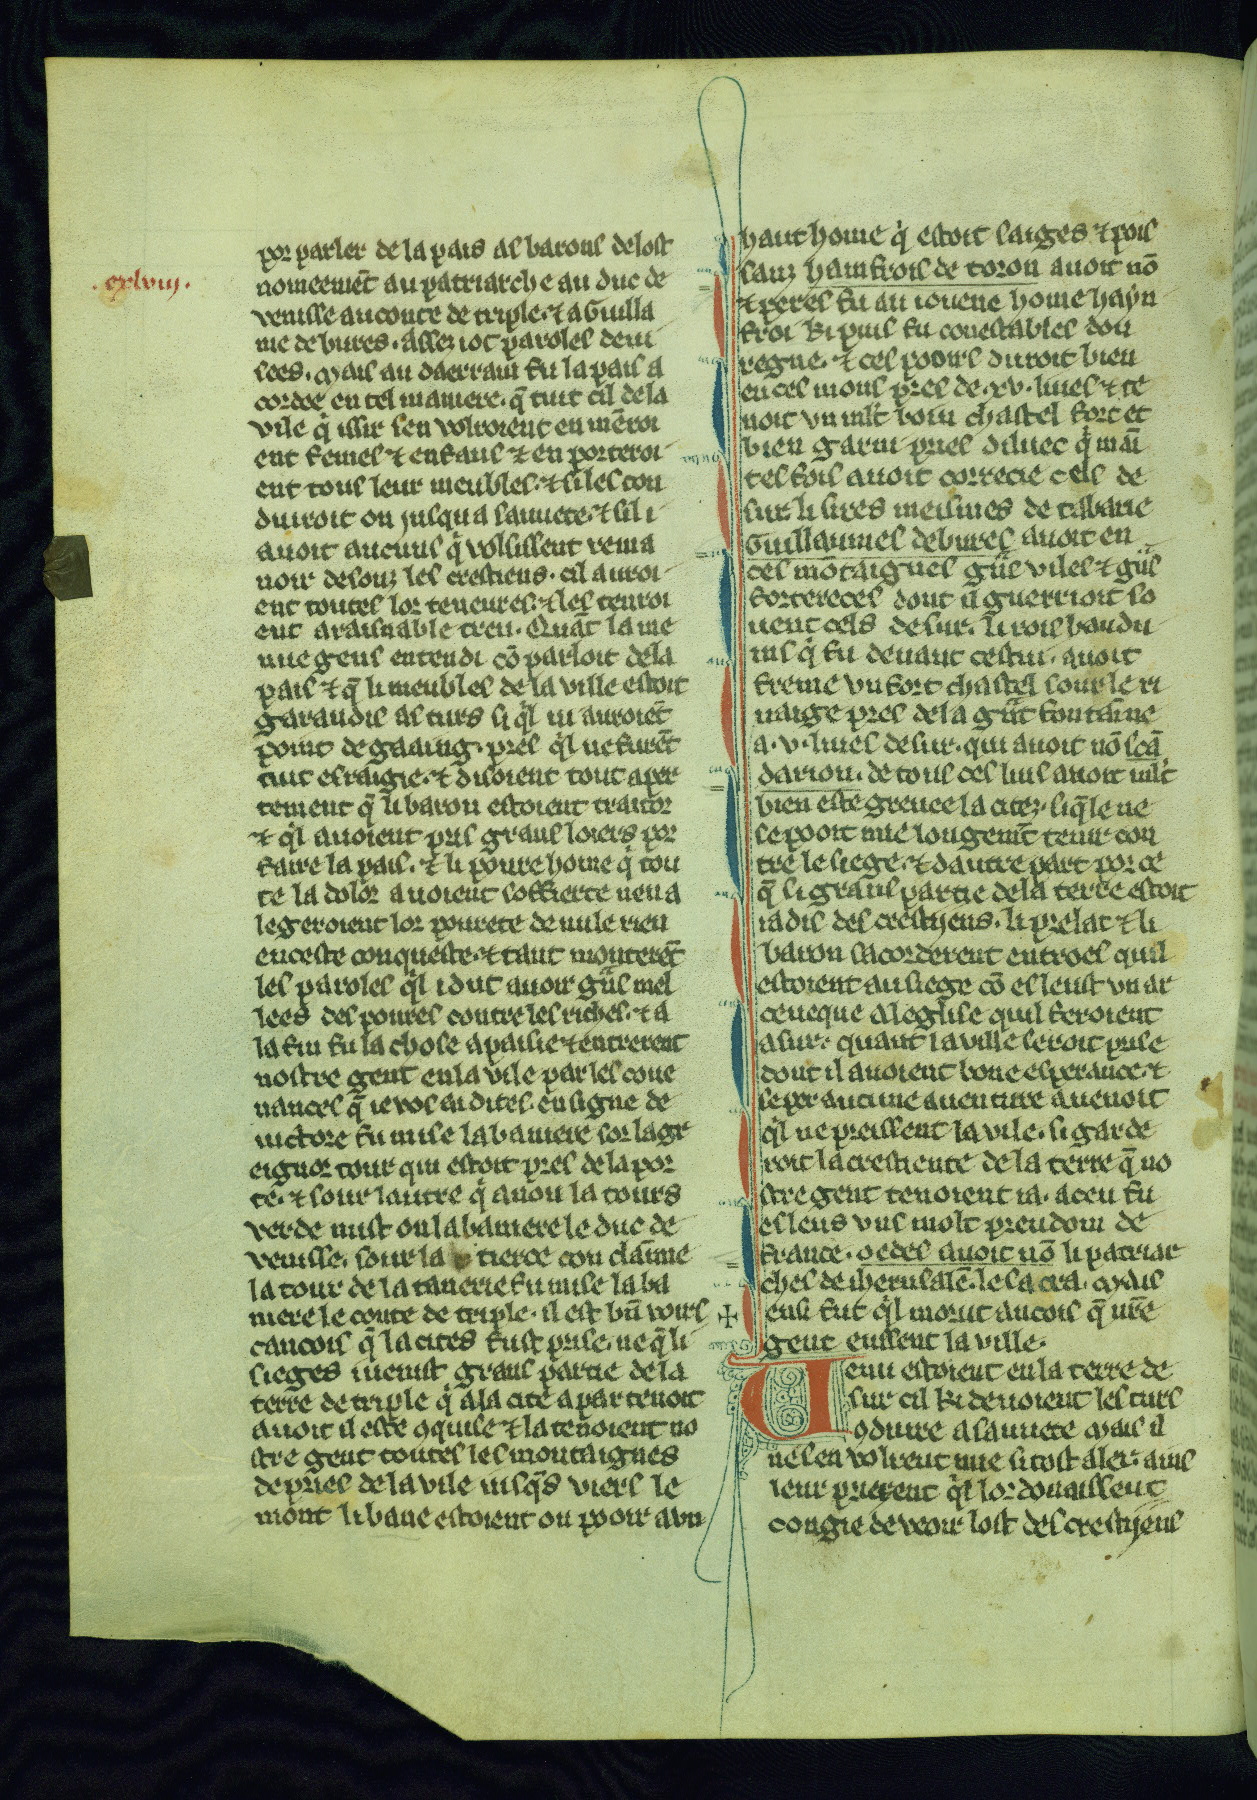 .cxlviij.
por parler de la pais as barons de lost
nomeemēt au patriarche au duc de
venisse au conte de triple. ⁊ a Guilla
me de bures. Assez i ot paroles devi
sees. Mais au daerrain fu la pais a
cordee en tel maniere. q̄ tuit cil de la
vile q̇ issir sen volroient en mēroi
ent femes ⁊ enfans ⁊ en porteroi
ent tous leur meubles. ⁊ si les con
duiroit on jusqua sauuete. ⁊ sil i
auoit aucuns q̇ volsissent rema
noir desouz les crestiens. cil auroi
ent toutes lor teneures. ⁊ les tenroi
ent a raisnable treu. Quāt la me
nue gens entendi cō parloit de la
pais ⁊ q̄ li meubles de la ville estoit
garandis as turs si q̇l ni auroiēt
point de gaaing. pres q̇l ne furēt
tuit esraigie. ⁊ disoient tout aper
tement q̄ li baron estoient traitor
⁊ q̇l auoient pris grans loiers por
faire la pais. ⁊ li poure home q̇ tou
te la dolor auoient soffierte nen a
legeroient lor pourete de nule rien
en ceste conqueste. ⁊ tant monterēt
les paroles q̇l i dut auoir gn̄s mel
lees des poures contre les riches. ⁊ a
la fin fu la chose apaisie ⁊ entrerent
nostre gent en la vile par les coue
nances q̄ ie vos ai dites. en signe de
victore fu mise la baniere sor la gr
eignor tour qui estoit pres de la por
te. ⁊ sour lautre q̇ a non la tours
verde mist on la baniere le duc de
venisse. sour la tierce con claīme
la tour de la tanerie fu mise la ba
niere le conte de triple. il est bn̄ voirs
cancois q̄ la cites fust prise. ne q̄ li
sieges i venist grans partie de la
terre de triple q̇ a la cite apartenoit
auoit il este ꝯquise ⁊ la tenoient no
stre gent toutes les montaignes
de pries de la vile iusq̄s viers le
mont libane estoient ou pooir a vn
haut home q̇ estoit saiges ⁊ pois
sanz hainfrois de toron auoit nō
⁊ peres fu au iouene home hayn
froi ki puis fu conestables dou
regne. ⁊ cel pooirs duroit bien
en cel mons pres de .xv. liues ⁊ te
noit vn ml̄t boin chastel fort et
bien garni pries diluec q̇ mai
tes fois auoit correcie cels de
sur. li sires meismes de tabarie
Guillaumes de bures auoit en
ces mōtaignes gn̄s viles ⁊ gn̄s
forterecés dont il guerrioit so
uent cels de sur. li rois bandu
ins q̇ fu deuant cestui. auoit
freme vn fort chastel sour le ri
uaige pres de la grāt fontaīne
a .v. liues de sur. qui auoit nō scā
darion. de tous ces lius auoit ml̄t
bien este greuee la citez. si q̄le ne
se pooit mie longemēt tenir con
tre le siege. ⁊ dautre part por ce
q̄ si grans partie de la terre estoit
iadis des crestijens. li prelat ⁊ li
baron sacorderent entroes quil
estoient au siege cō esleust vn ar
ceueque a leglise quil feroient
a sur. quant la ville seroit prise
dont il auoient bone esperance. ⁊
se par aucune auenture auenoit
q̇l ne preissent la vile. si garde
roit la crestiente de la terre q̄ no
stre gent tenoient ia. a ceu fu
esleus vns molt preudom de
france. oedes auoit nō li patriar
ches de iherusalē. le sacra. Mais
ensi fut q̇l morut ancois q̄ nr̄e
gent eussent la ville.
Uenu estoient en la terre de
sur cil ki deuoient les turs
ꝯduire a sauuete Mais il
ne sen volrent mie si tost aler. ains
leur prierent q̇l lor donaissent
congie de veoir lost des crestijens